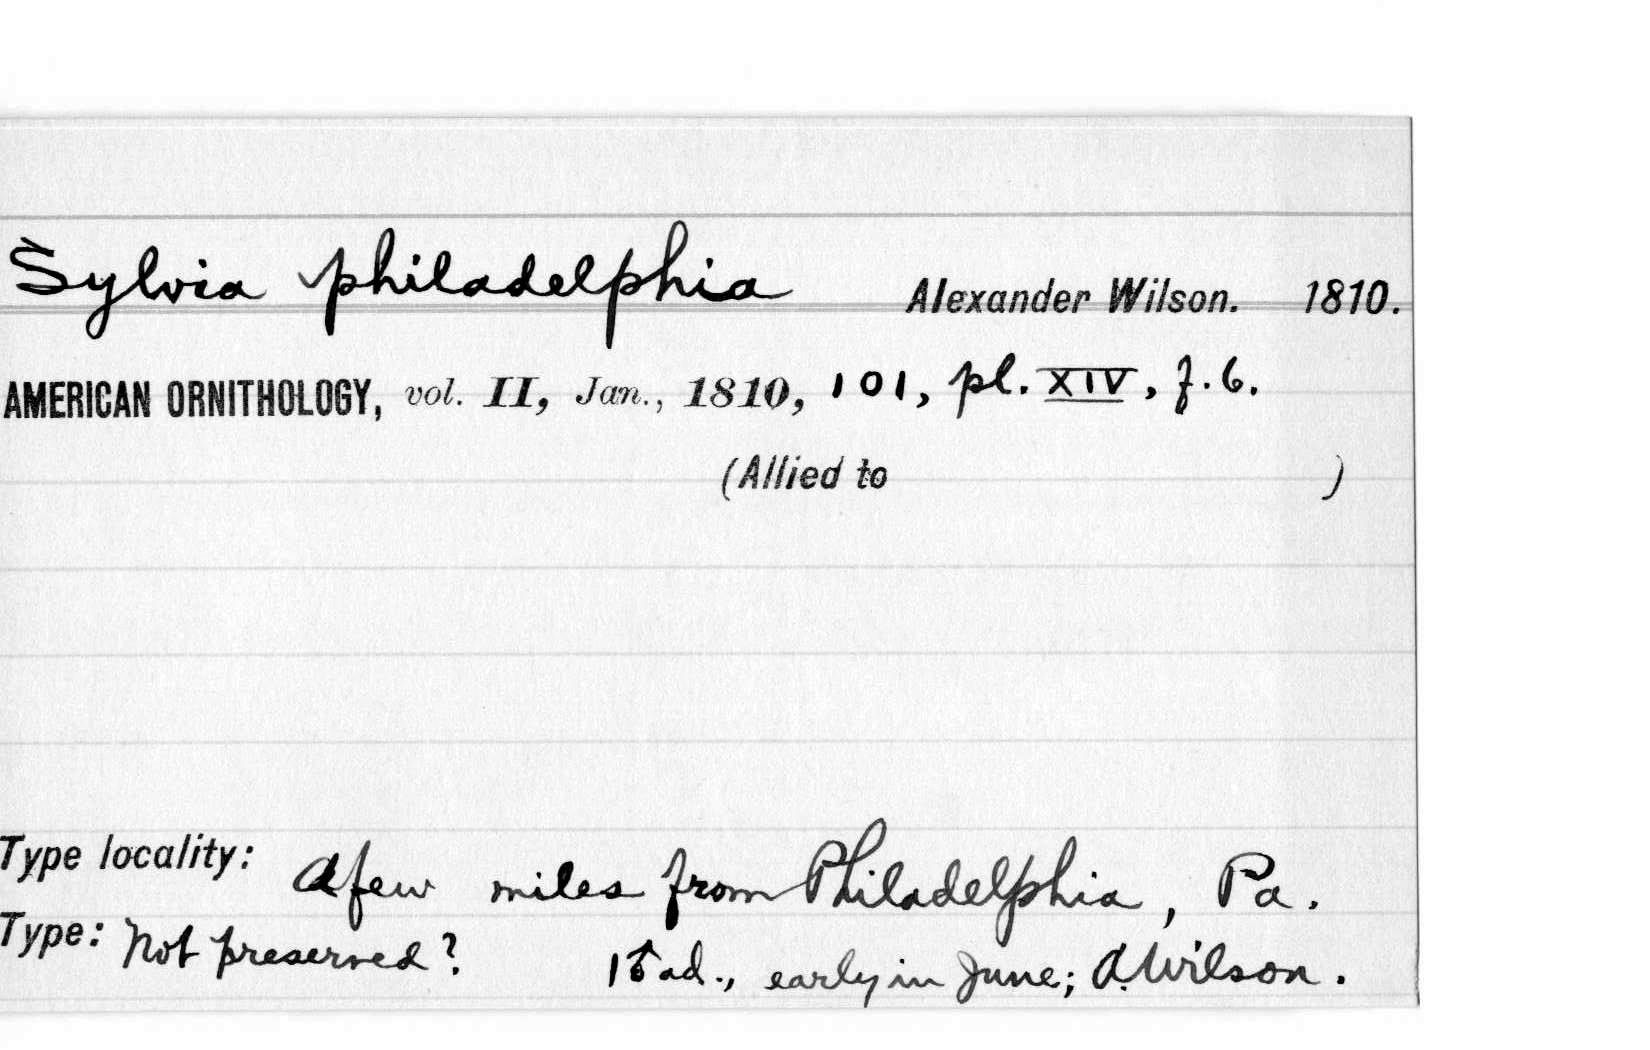 Sylvia philadelphia Alexander Wilson. 1810.
AMERICAN ORNITHOLOGY, vol. II, Jan., 1810, 101, pl. XIV, f. 6.
(Allied to )
Type locality: A few miles from Philadelphia, Pa.
Type: Not preserved? 1 ♂ ad., early in June; A. Wilson.